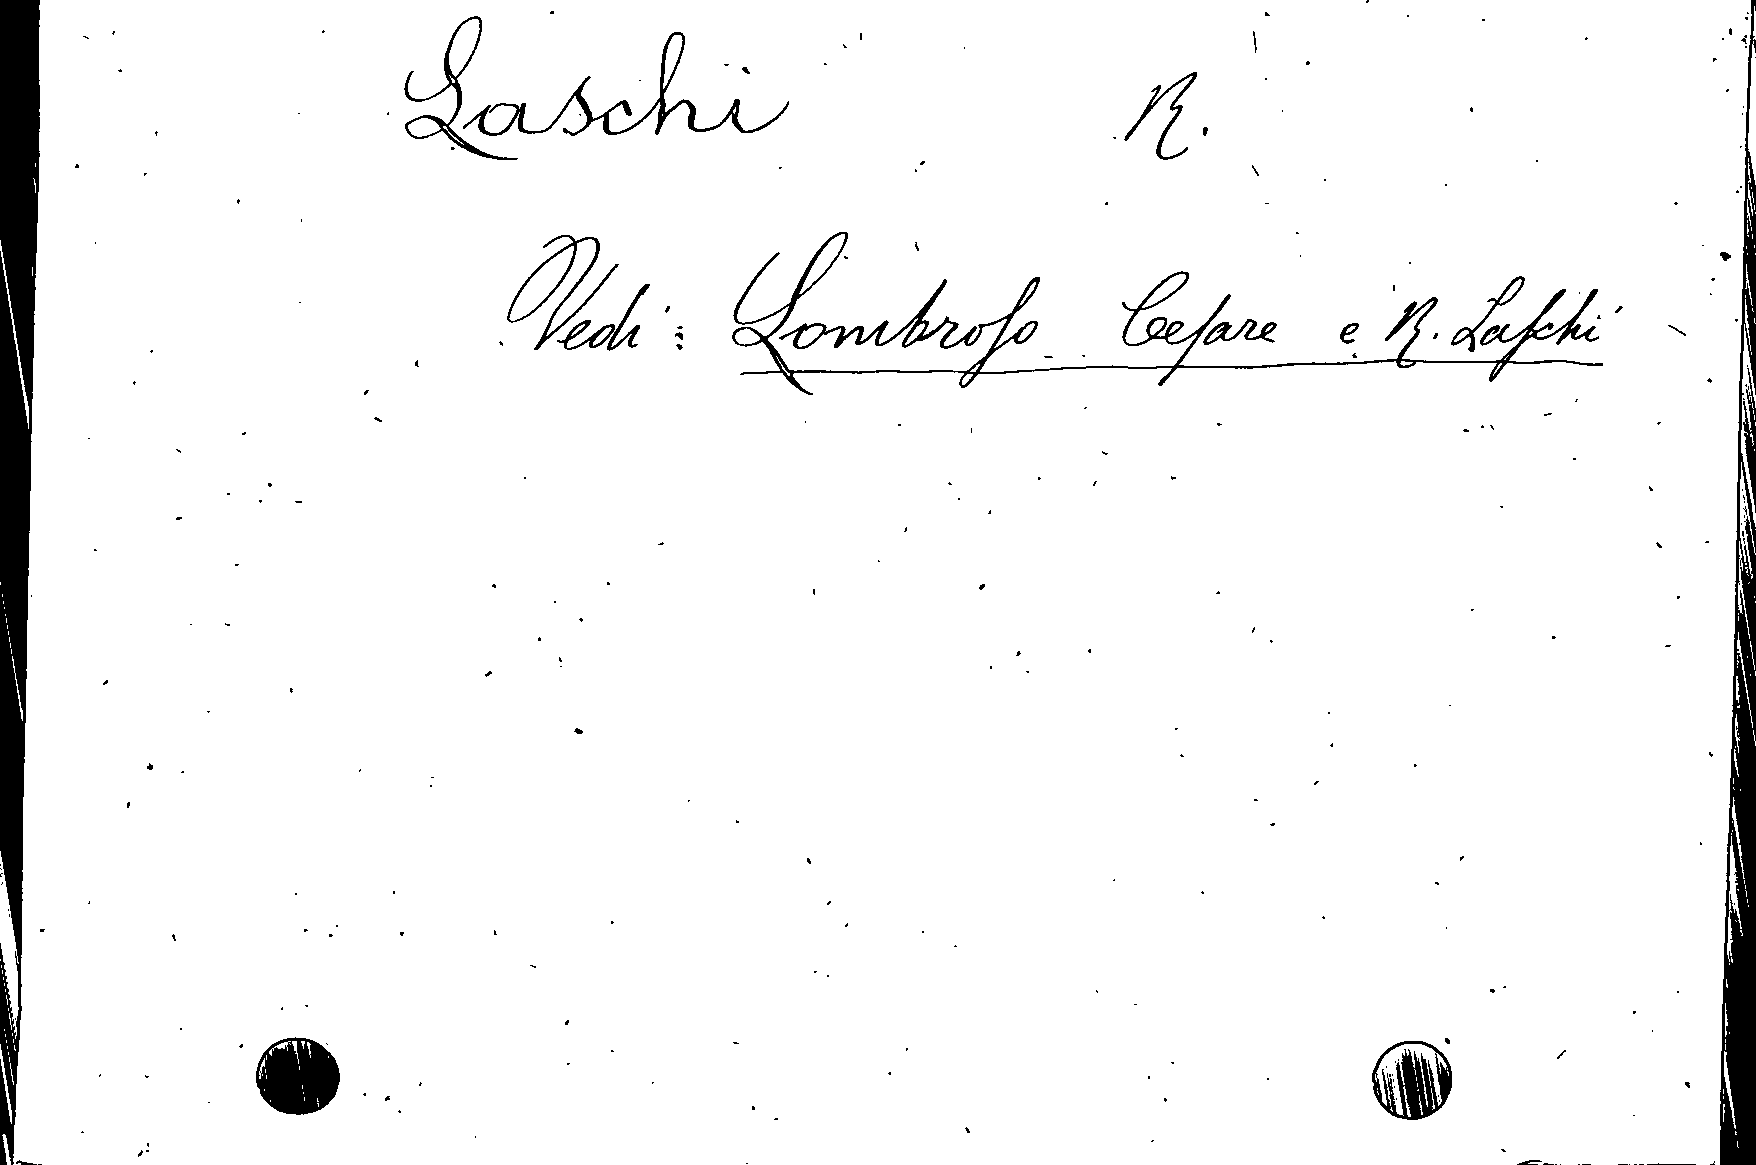 Laschi R.
Vedi: Lombroſo Ceſare e R. Laſchi